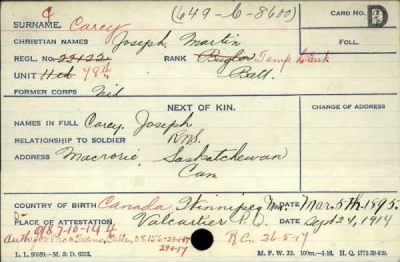 C
(649-C-8600)
CARD NO.
D
SURNAME. Carey
CHRISTIAN NAMES Joseph Martin
FOLL.
REGL. NO. 22122 RANK Bugler Temp Lieut
UNIT 11th 78th Batt.
FORMER CORPS Nil
NEXT OF KIN.
CHANGE OF ADDRESS
NAMES IN FULL Carey, Joseph
RELATIONSHIP TO SOLDIER
ADDRESS Macrorie, Saskatchewan
Can
COUNTRY OF BIRTH Canada Winnipeg Man. Mar. 5th 1895.
PLACE OF ATTESTATION Valcartier P.Q. Sept 24, 1914
O/S 3-10-14 4
R.C. 26-5-17
29-4-17
L. L. 90689.—M. & D. 6313. M. F. W. 22. 100m.—1-16. H. Q. 1772-39-839.